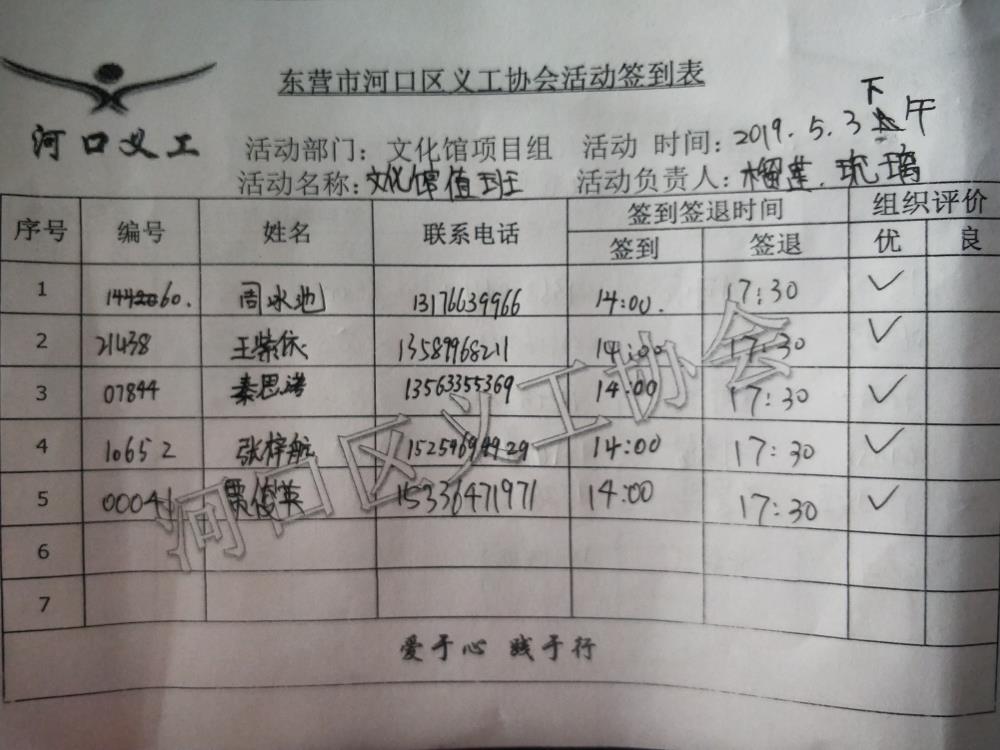 东营市河口区义工协会活动签到表
河口义工
活动部门：文化馆项目组 活动 时间：2019.5.3下午
活动名称：文化馆值班 活动负责人：榴莲.琉璃
序号 编号 姓名 联系电话 签到签退时间 组织评价
签到 签退 优 良
1 周冰池 13176639966 14:00. 17:30 ✓
2 21438 王紫依 13589968211 14:00 17:30 ✓
3 07844 秦思诺 13563355369 14:00 17:30 ✓
4 10652 张梓航 14:00 17:30 ✓
5 00041 贾俊英 15336471971 14:00 17:30 ✓
6
7
爱于心 践于行
河口区义工协会